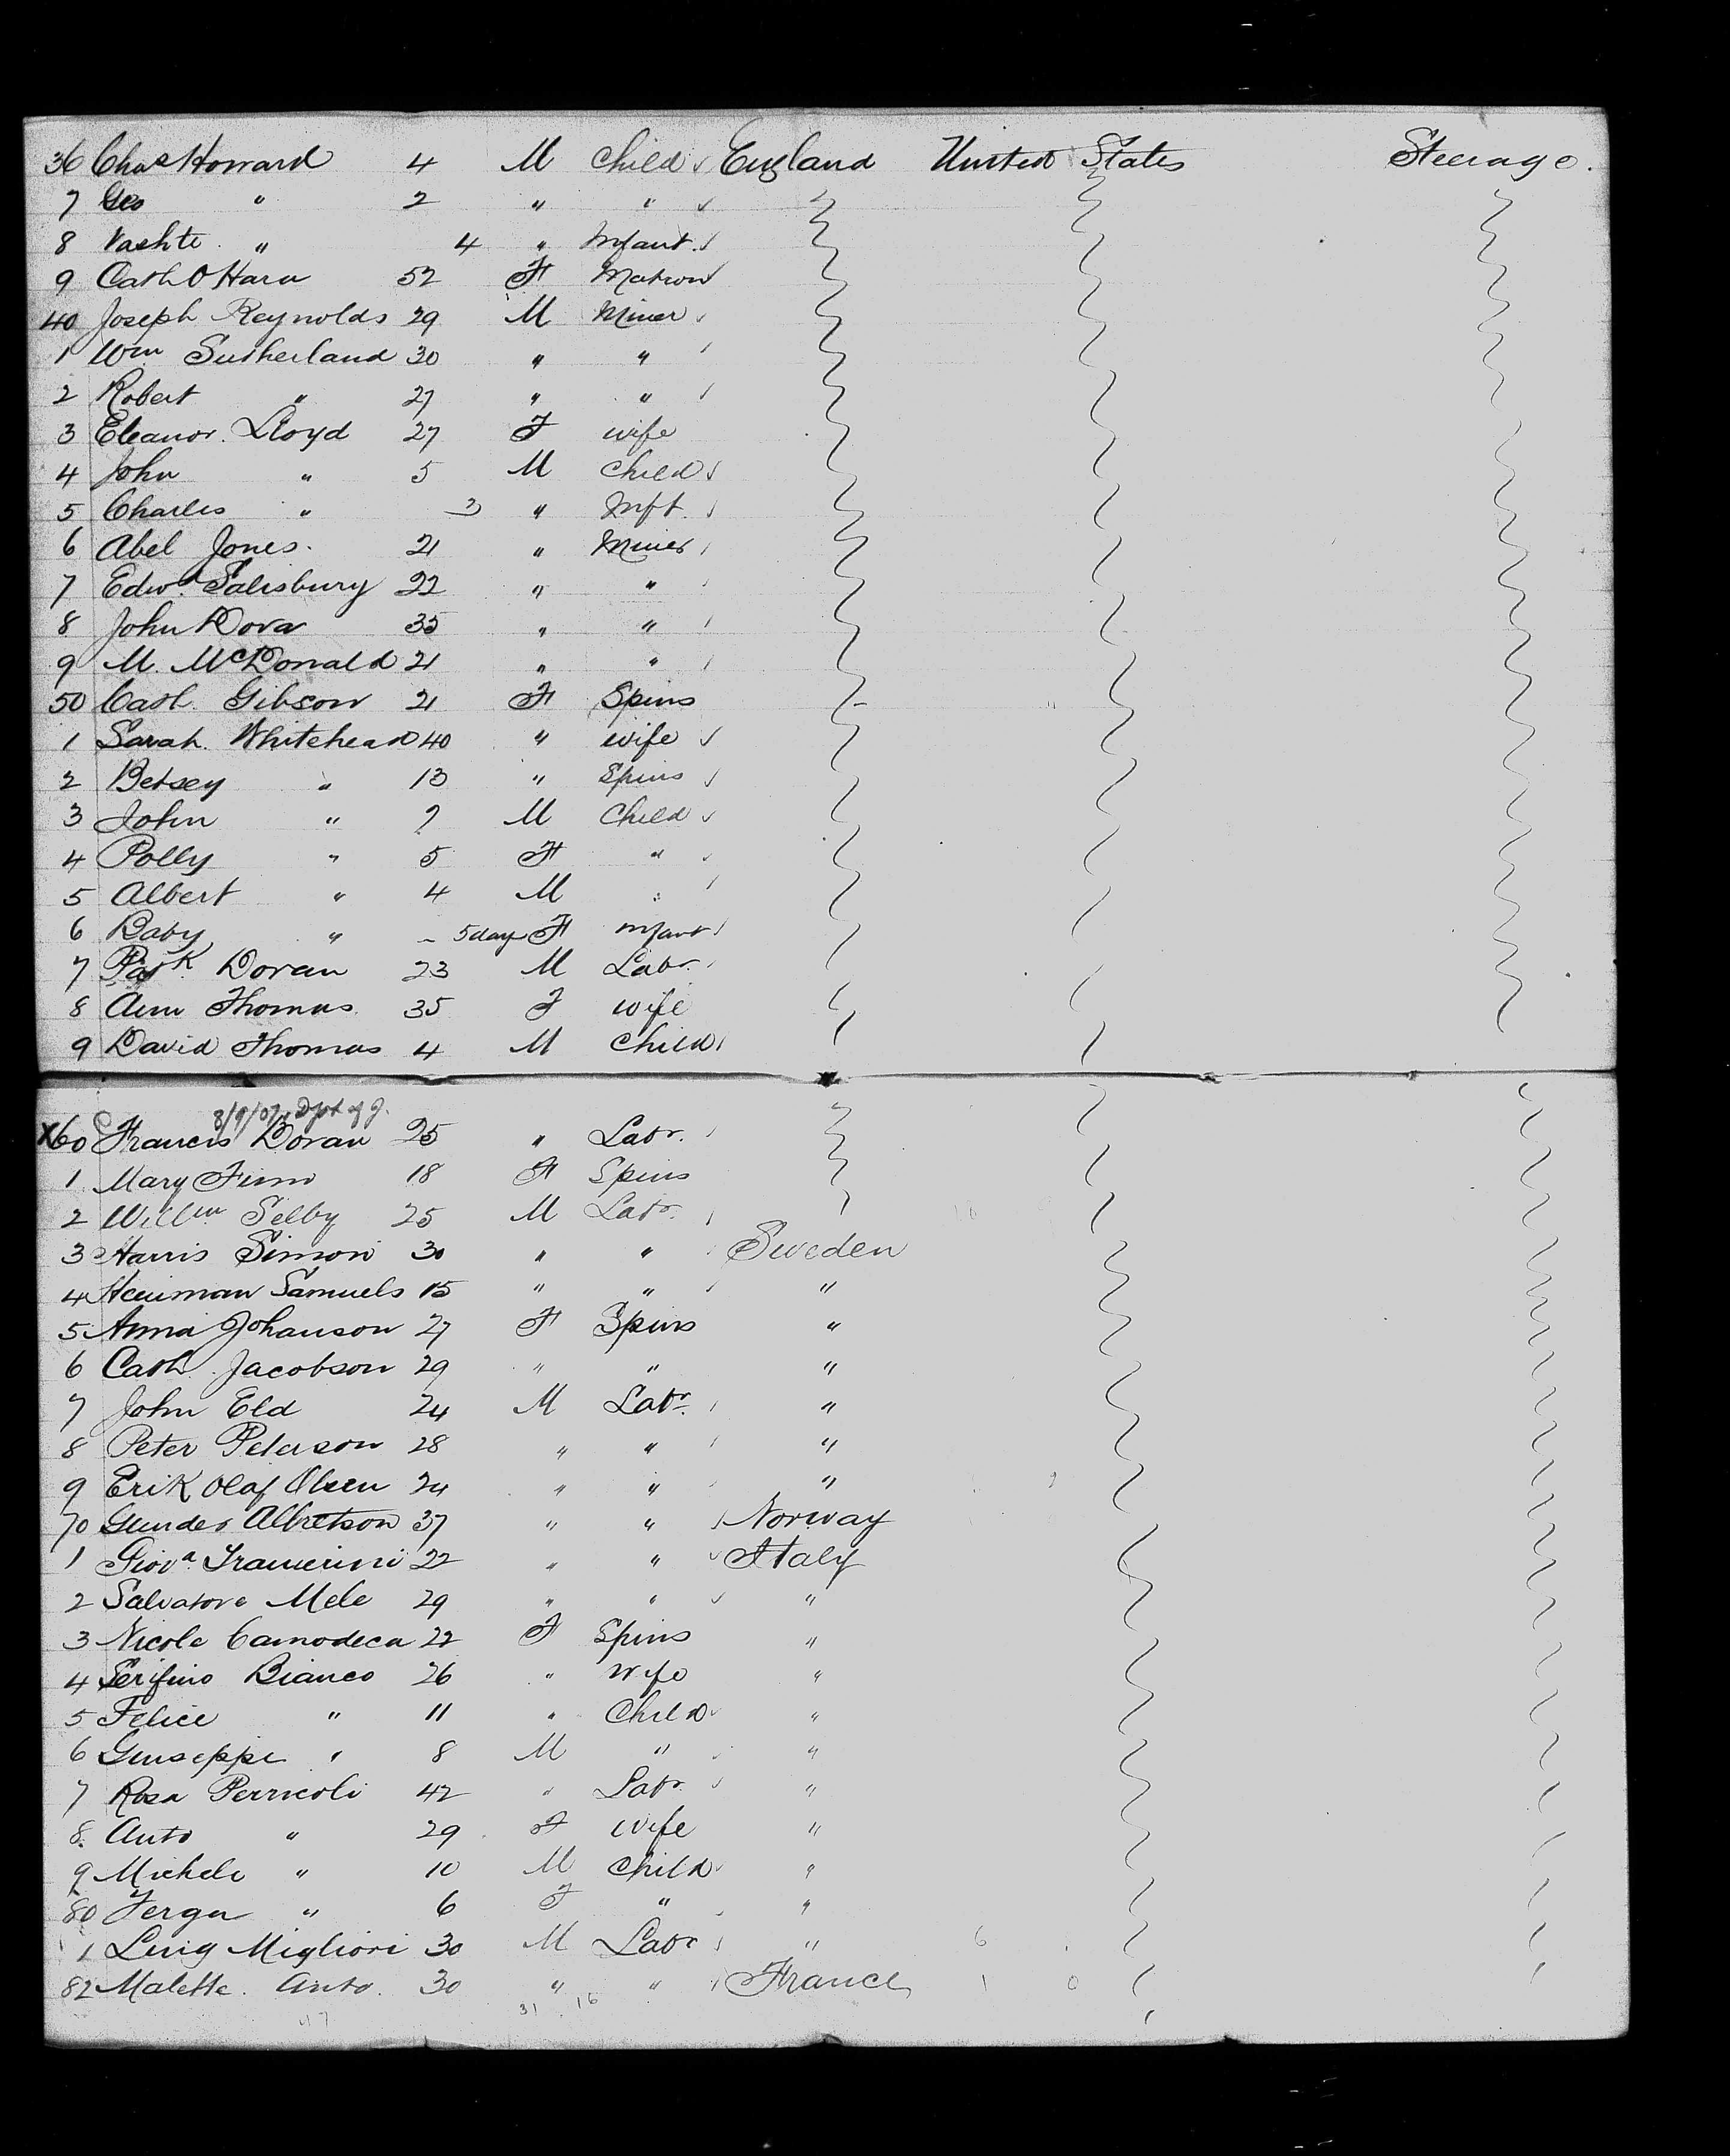 36 Chas Howard 4 M Child England United States Steerage.
7 Geo " 2 " "
8 Vashte " 4 " Infant.
9 Cath O Hara 52 F Matron
40 Joseph Reynolds 29 M Miner
1 Wm Sutherland 30 " "
2 Robert " 27 " "
3 Eleanor Lloyd 27 F wife
4 John " 5 M Child
5 Charles " 3 " Inft.
6 Abel Jones. 21 " Miner
7 Edwd. Salisbury 22 " "
8 John Dora 35 " "
9 M. McDonald 21 " "
50 Cath. Gibson 21 F Spins
1 Sarah Whitehead 40 " wife
2 Betsey " 13 " Spins
3 John " 7 M Child
4 Polly " 5 F "
5 Albert " 4 M "
6 Baby " - 5 day F infant
7 Patk. Doran 23 M Labr.
8 Ann Thomas 35 F wife
9 David Thomas 4 M Child
8/9/07 Dpt of J.
X60 Francis Doran 25 " Labr.
1 Mary Finn 18 F Spins
2 Willm Selby 25 M Labr.
3 Harris Simon 30 " " Sweden
4 Samuels 15 " " "
5 Anna Johanson 27 F Spins "
6 Cath. Jacobson 29 " " "
7 John Eld 24 M Labr. "
8 Peter Peterson 28 " " "
9 Erik Olaf Olsen 24 " " "
70 Gunder Albretson 37 " " Norway
1 Giova. 22 " " Italy
2 Salvatore Mele 29 " " "
3 Nicole Camodeca 22 F Spins "
4 Serifino Bianco 26 " wife "
5 Felice " 11 " Child "
6 Guiseppe " 8 M " "
7 Rosa Perricoli 42 " Labr. "
8. Anto " 29 F wife "
9 Michele " 10 M Child "
80 " 6 F " "
1 Luig Migliori 30 M Labr " 6
82 Malette. Anto. 30 " " France 1 0
47 31 16